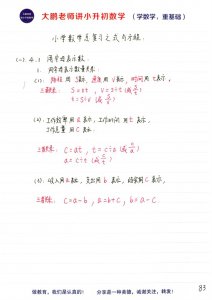 大鹏老师讲小升初数学（学数学，重基础）
小学数学总复习之式与方程
(一) 4.1 用字母表示数
1. 用字母表示数量关系
(1). 路程用S表示，速度用V表示，时间用t表示，
三者关系: S=vt , v=s÷t (或 s/t)
t=s÷v (或 s/v)
(2). 工作效率用a表示，工作时间用t表示，
工作总量用C表示，
三者关系: c=at , t=c÷a (或 c/a)
a=c÷t (或 c/t)
(3). 收入用a表示，支出用b表示，结余用C表示，
三者关系: c=a-b , a=b+c , b=a-c
83
做教育，我们是认真的！ 分享是一种美德，诚谢关注，转发！